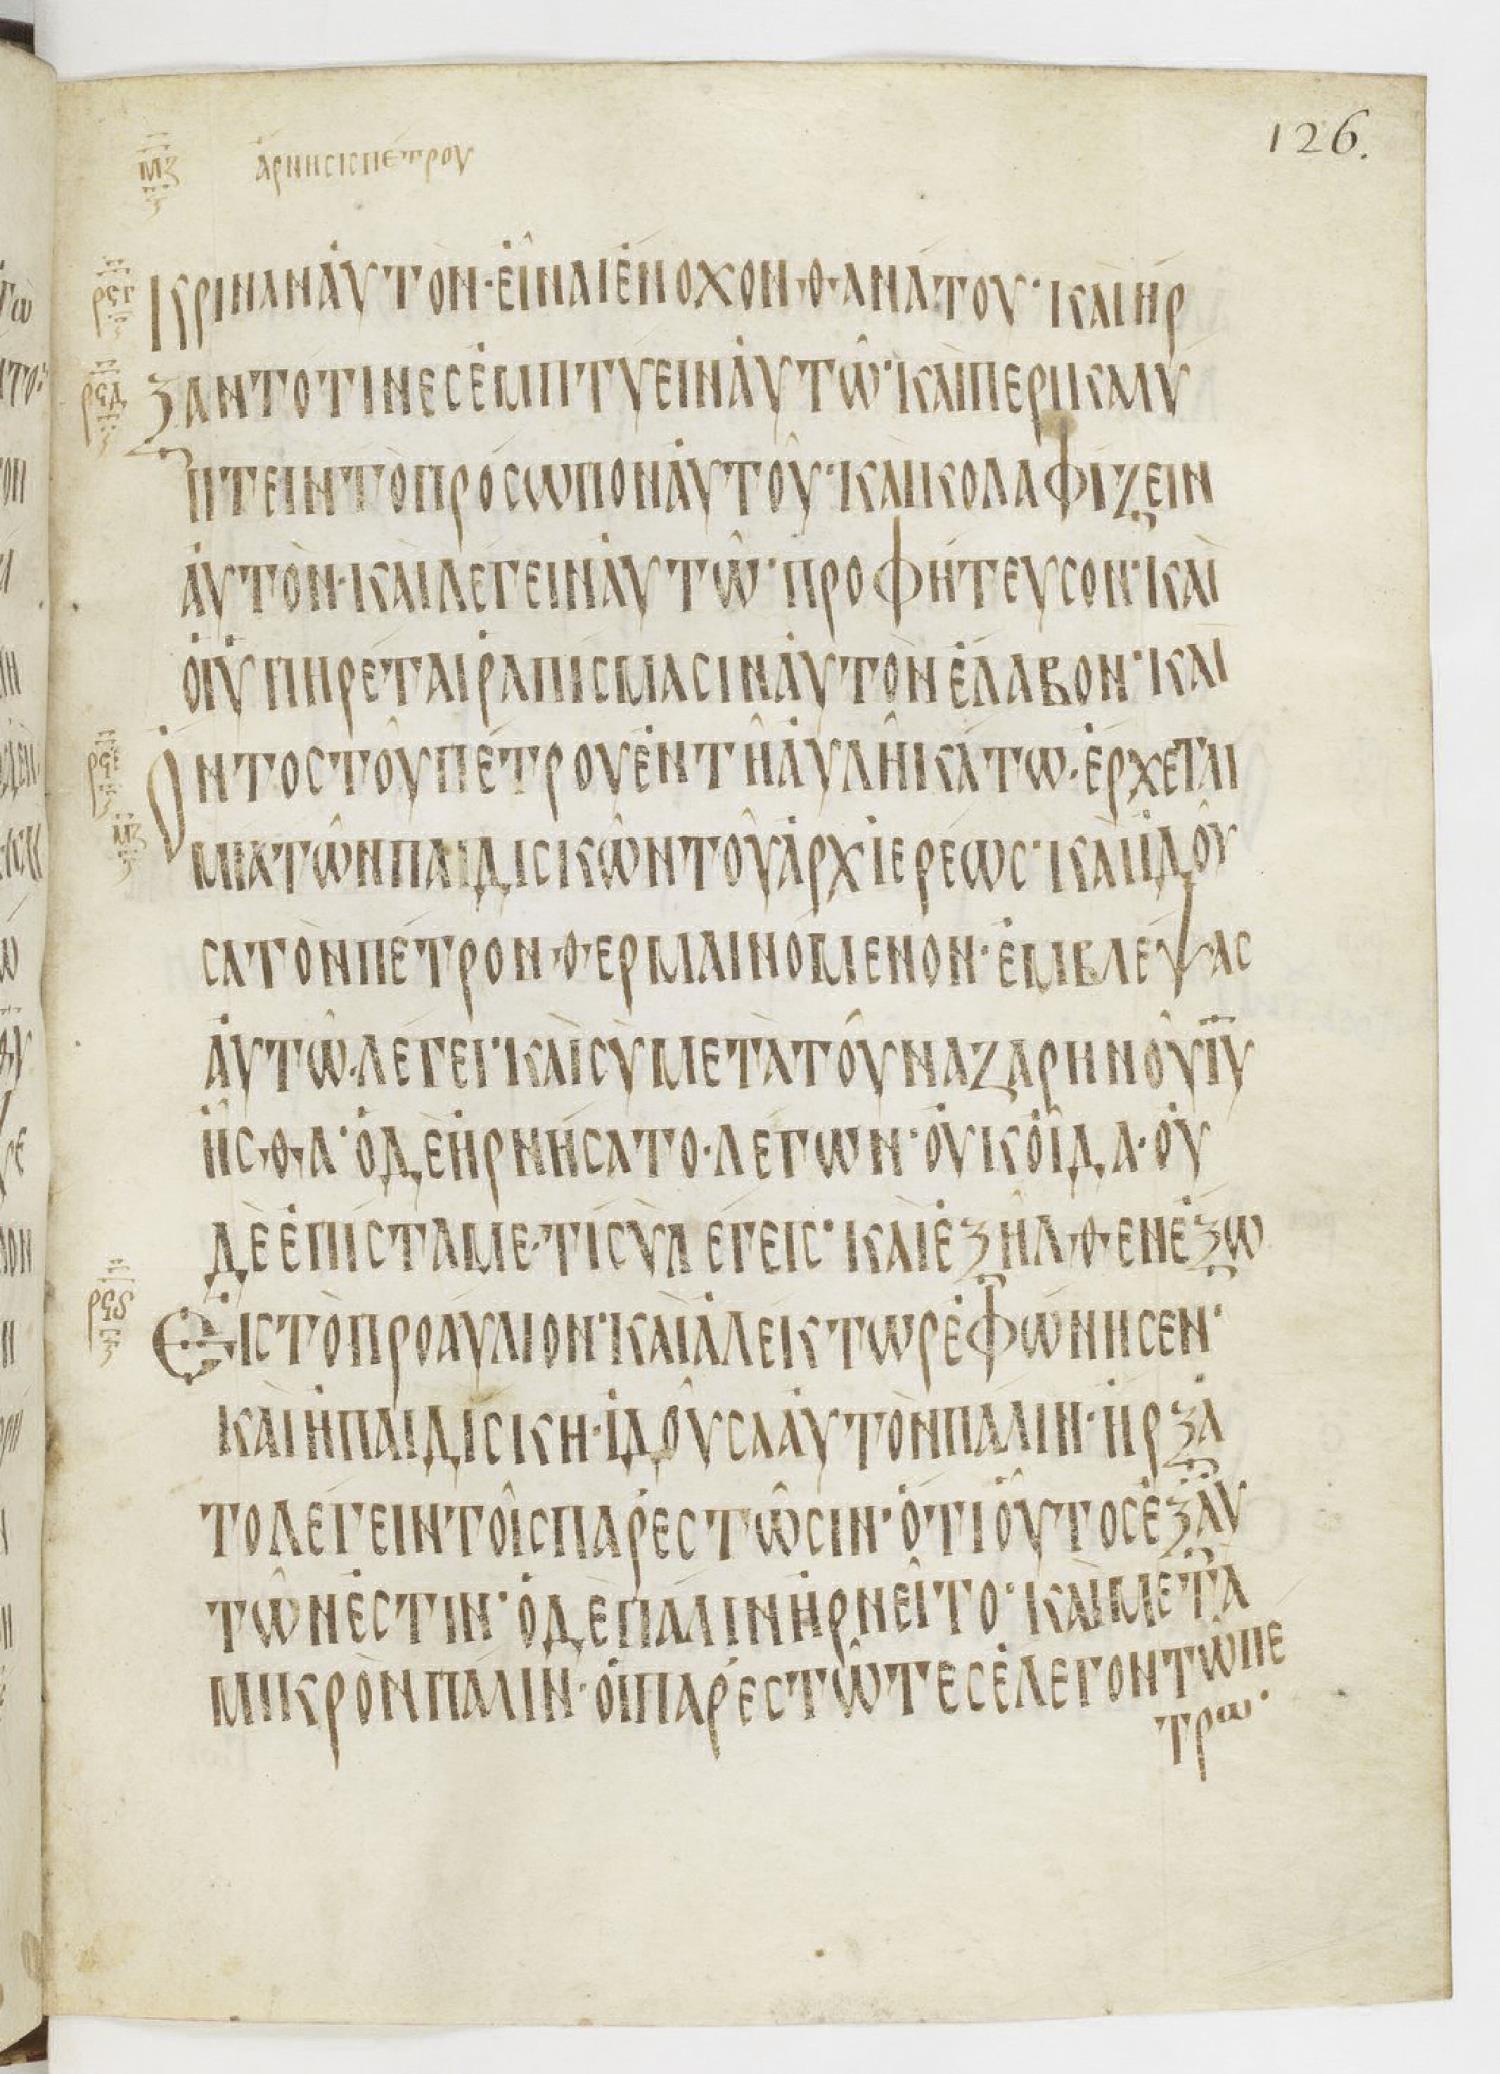 126.
ΜΖ ἄρνησις πέτρου
ΡϞΓ ΚΡΙΝΑΝ ἀΥΤΟΝ· ΕἶΝΑΙ ἔΝΟΧΟΝ ΘΑΝΆΤΟΥ· ΚΑῚ ΗΡ
ΡϞΔ ΞΑΝΤΟ ΤΙΝΕΣ ἐΜΠΤΎΕΙΝ ἀΥΤῶ· ΚΑῚ ΠΕΡΙΚΑΛΥ
ΠΤΕΙΝ ΤῸ ΠΡΌΣΩΠΟΝ ἀΥΤΟῦ· ΚΑῚ ΚΟΛΑΦΊΖΕΙΝ
ἀΥΤῸΝ· ΚΑῚ ΛΈΓΕΙΝ ἀΥΤῶ· ΠΡΟΦΉΤΕΥΣΟΝ· ΚΑῚ
ὁΙ ὑΠΗΡΈΤΑΙ ῥΑΠΊΣΜΑΣΙΝ ἀΥΤῸΝ ἔΛΑΒΟΝ· ΚΑΙ
ΡϞΕ ὄΝΤΟΣ ΤΟῦ ΠΈΤΡΟΥ ἐΝ Τῆ ἀΥΛῆ ΚΆΤΩ· ἔΡΧΕΤΑΙ
ΜΖ ΜΙΑ ΤῶΝ ΠΑΙΔΙΣΚῶΝ ΤΟῦ ἀΡΧΙΕΡΈΩΣ· ΚΑῚ ἰΔΟῦ
ΣΑ ΤῸΝ ΠΈΤΡΟΝ ΘΕΡΜΑΙΝΌΜΕΝΟΝ· ἐΜΒΛΈΨΑΣ
ἀΥΤῶ· ΛΈΓΕΙ· ΚΑῚ ΣῪ ΜΕΤᾺ ΤΟῦ ΝΑΖΑΡΗΝΟῦ ΙΥ
ἦΣΘΑ· ὁ ΔΕ ἠΡΝΉΣΑΤΟ· ΛΈΓΩΝ· ὀΥΚ ΟἶΔΑ· ὀΥ
ΔῈ ἐΠΊΣΤΑΜΕ· ΤΊ ΣῪ ΛΈΓΕΙΣ· ΚΑῚ ἐΞῆΛΘΕΝ ἔΞΩ
ΡϞϚ ἐΙΣ ΤῸ ΠΡΟΑΎΛΙΟΝ· ΚΑῚ ἀΛΈΚΤΩΡ ἐΦΏΝΗΣΕΝ·
ΚΑῚ ἡ ΠΑΙΔΊΣΚΗ· ἰΔΟῦΣΑ ἀΥΤῸΝ ΠΆΛΙΝ· ἤΡΞΑ
ΤΟ ΛΈΓΕΙΝ ΤΟῖΣ ΠΑΡΕΣΤῶΣΙΝ· ὅΤΙ ΟὗΤΟΣ ἐΞ ἀΥ
ΤῶΝ ἐΣΤΙΝ· ὁ ΔῈ ΠΆΛΙΝ ἠΡΝΕῖΤΟ· ΚΑῚ ΜΕΤᾺ
ΜΙΚΡῸΝ ΠΆΛΙΝ· ὁΙ ΠΑΡΕΣΤῶΤΕΣ ἔΛΕΓΟΝ Τῶ ΠΕ
ΤΡΩ·